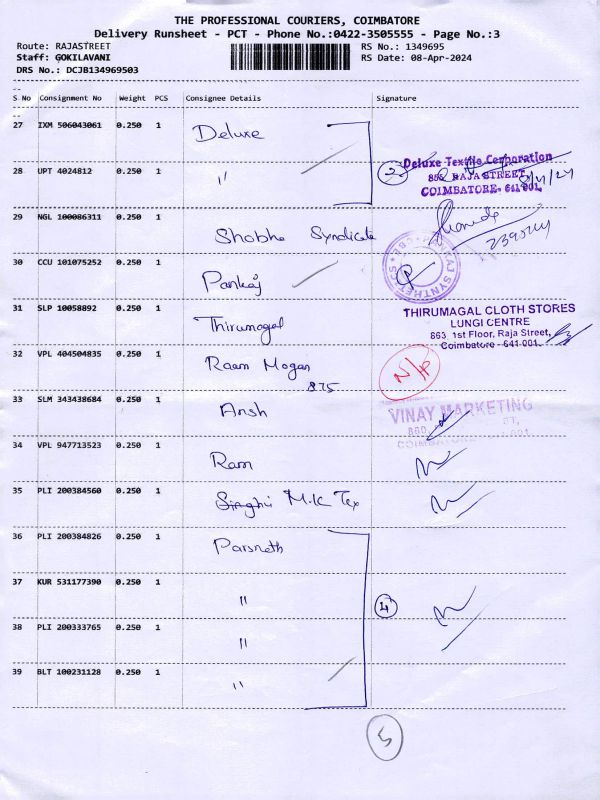 THE PROFESSIONAL COURIERS, COIMBATORE
Delivery Runsheet - PCT - Phone No.:0422-3505555 - Page No.:3
Route: RAJASTREET RS No.: 1349695
Staff: GOKILAVANI RS Date: 08-Apr-2024
DRS No.: DCJB134969503
S No Consignment No Weight PCS Consignee Details Signature
27 IXM 506043061 0.250 1 Deluxe
28 UPT 4024812 0.250 1 "
2
Deluxe Textile Corporation
RAJA STREET,
COIMBATORE- 641 001.
29 NGL 100086311 0.250 1 Shobha Syndicate
30 CCU 101075252 0.250 1 Pankaj
31 SLP 10058892 0.250 1 Thirumagal
THIRUMAGAL CLOTH STORES
LUNGI CENTRE
863, 1st Floor, Raja Street,
Coimbatore - 641 001.
32 VPL 404504835 0.250 1 Raam Mogan
875
N/P
33 SLM 343438684 0.250 1 Ansh
VINAY MARKETING
34 VPL 947713523 0.250 1 Ram
35 PLI 200384560 0.250 1 Singhvi M.K Tex
36 PLI 200384826 0.250 1 Parsneth
37 KUR 531177390 0.250 1 "
4
38 PLI 200333765 0.250 1 "
39 BLT 100231128 0.250 1 "
5